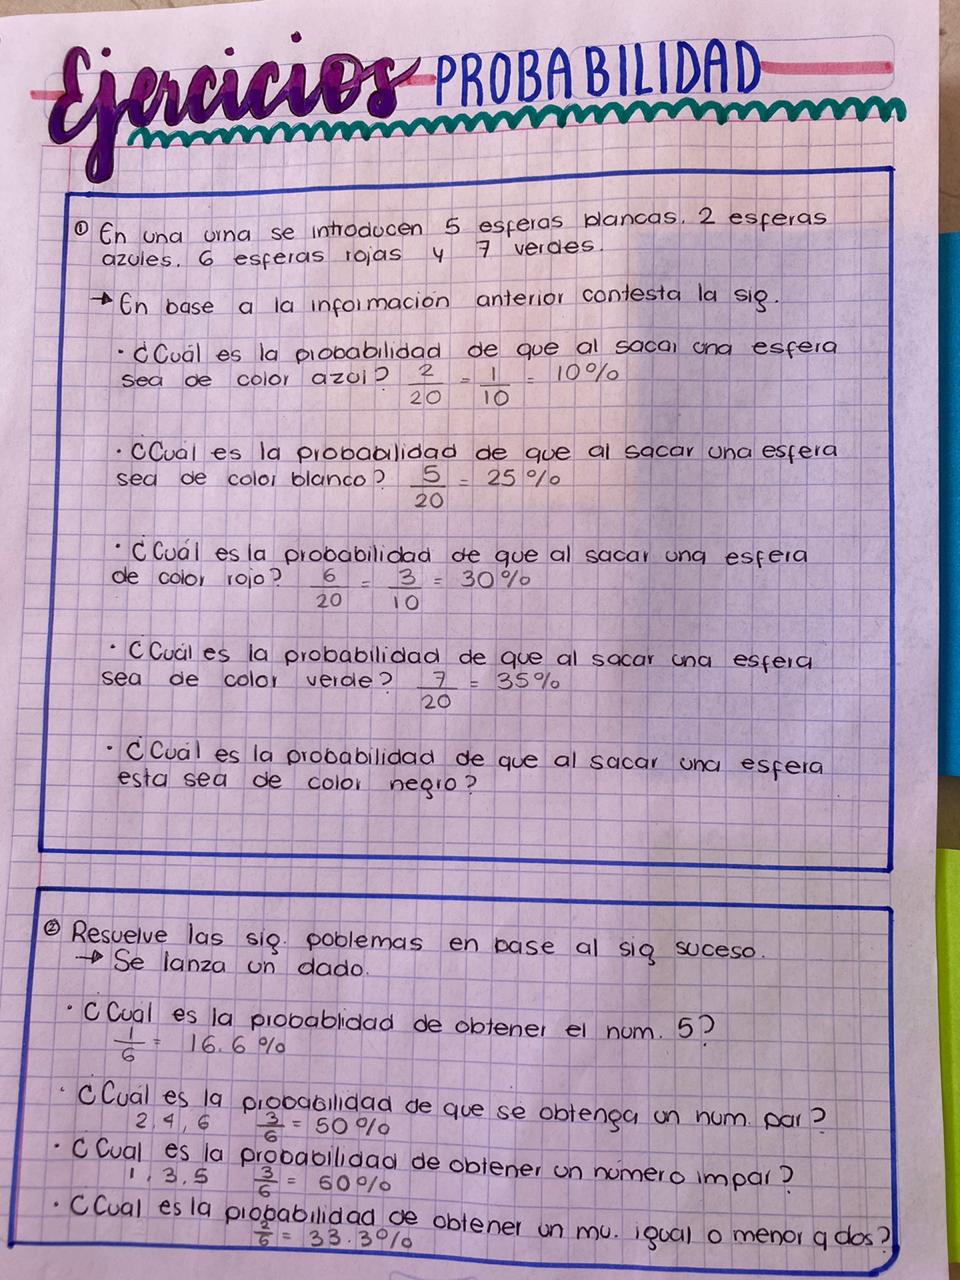 Ejercicios PROBABILIDAD
① En una urna se introducen 5 esferas blancas. 2 esferas
azules. 6 esferas rojas y 7 verdes.
→ En base a la información anterior contesta la sig.
· ¿Cuál es la probabilidad de que al sacar una esfera
sea de color azul? 2/20 = 1/10 = 10%
· ¿Cuál es la probabilidad de que al sacar una esfera
sea de color blanco? 5/20 = 25%
· ¿Cuál es la probabilidad de que al sacar una esfera
de color rojo? 6/20 = 3/10 = 30%
· ¿Cuál es la probabilidad de que al sacar una esfera
sea de color verde? 7/20 = 35%
· ¿Cuál es la probabilidad de que al sacar una esfera
esta sea de color negro?
② Resuelve las sig. poblemas en base al sig suceso.
→ Se lanza un dado.
· ¿Cuál es la probablidad de obtener el num. 5?
1/6 = 16.6%
· ¿Cuál es la probabilidad de que se obtenga un num. par?
2, 4, 6 3/6 = 50%
· ¿Cual es la probabilidad de obtener un número impar?
1, 3, 5 3/6 = 50%
· ¿Cual es la probabilidad de obtener un mu. igual o menor q dos?
2/6 = 33.3%